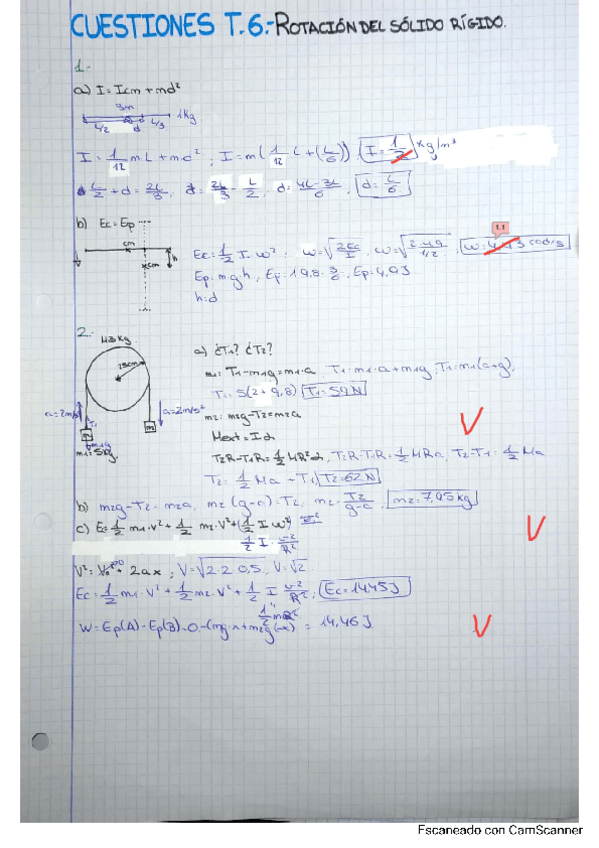 CUESTIONES T.6.- ROTACIÓN DEL SÓLIDO RÍGIDO.
1.-
a) I = Icm + md²
3m
1Kg
L/2 d L/3
I = 1/12 mL + md²; I = m(1/12 L + (L/6)) I = 1/2 kg/m³
L/2 + d = 2L/3, d = 2L/3 - L/2, d = 4L-3L/6 d = L/6
b) Ec = Ep
cm
h
cm
Ec = 1/2 I·ω² ω = √(2Ec/I), ω = √(2·4,9/1/2)
1.1
rad/s
Ep = m·g·h, Ep = 1·9,8·3/6, Ep = 4,9J
h = d
2.-
M=3Kg
25cm
a=2m/s²
a=2m/s²
T1
m1g
m1 = 5Kg
a) ¿T1? ¿T2?
m1: T1-m1g = m1·a, T1 = m1·a + m1g; T1 = m1(a+g)
T1 = 5(2+9,8) T1 = 59N
m2: m2g-T2 = m2a
Mext = Iα
T2R-T1R = 1/2 MR²α, T2R-T1R = 1/2 MRa, T2-T1 = 1/2 Ma
T2 = 1/2 Ma + T1 T2 = 62N
b) m2g-T2 = m2a, m2(g-a) = T2, m2 = T2/g-a, m2 = 7,95kg
c) Ec = 1/2 m1·v² + 1/2 m2·v² + (1/2 I ω²)
1/2 I · v²/R²
V² = V0² + 2ax; V = √2·2·0,5, V = √2
Ec = 1/2 m1·v² + 1/2 m2·v² + 1/2 I v²/R², Ec = 14,45J
1/2 mR²
W = Ep(A)-Ep(B) = 0-(mg·x+m2g(-x)) = 14,46J
Escaneado con CamScanner